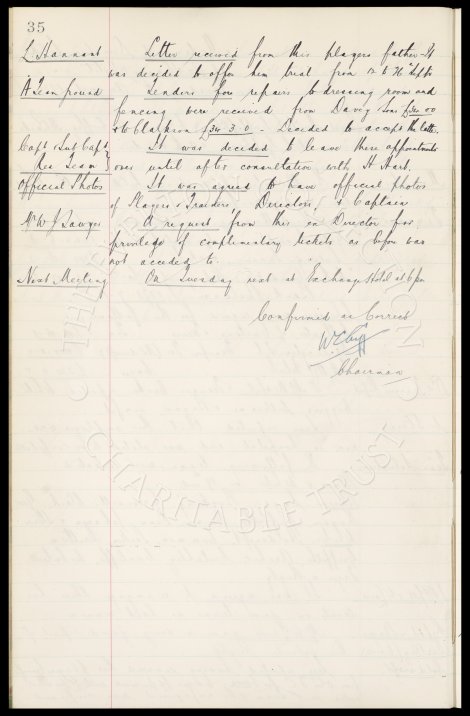 35
L Hannant Letter received from this players father - It
was decided to offer him trial from
A Team ground Tenders for repairs to dressing room and
fencing were received from Davey Sons £40 00
& to Clarkson £34 3. 0. Decided to accept the latter.
Capt & Sub Capt It was decided to leave these appointments
Res Team over until after consultation with H Hart.
Official Photos It was agreed to have official photos
of Players & Trainers, Directors, & Captain
Mr W J Sawyer A request from this ex Director for
privilege of complimentary tickets as before was
not acceded to.
Next Meeting On Tuesday next at Exchange Hotel at 6 pm
Confirmed as Correct
W C Cuff
Chairman
© THE EVERTON COLLECTION
CHARITABLE TRUST